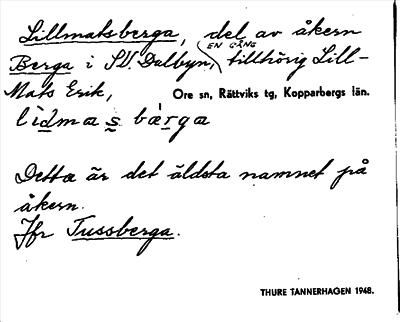 Lillmatsberga, del av åkern
Berga i S.V. Dalbyn, EN GÅNG tillhörig Lill-
Mats Erik, Ore sn, Rättviks tg, Kopparbergs län.
lìdmas bárga
Detta är det äldsta namnet på
åkern.
Jfr Tussberga.
THURE TANNERHAGEN 1948.